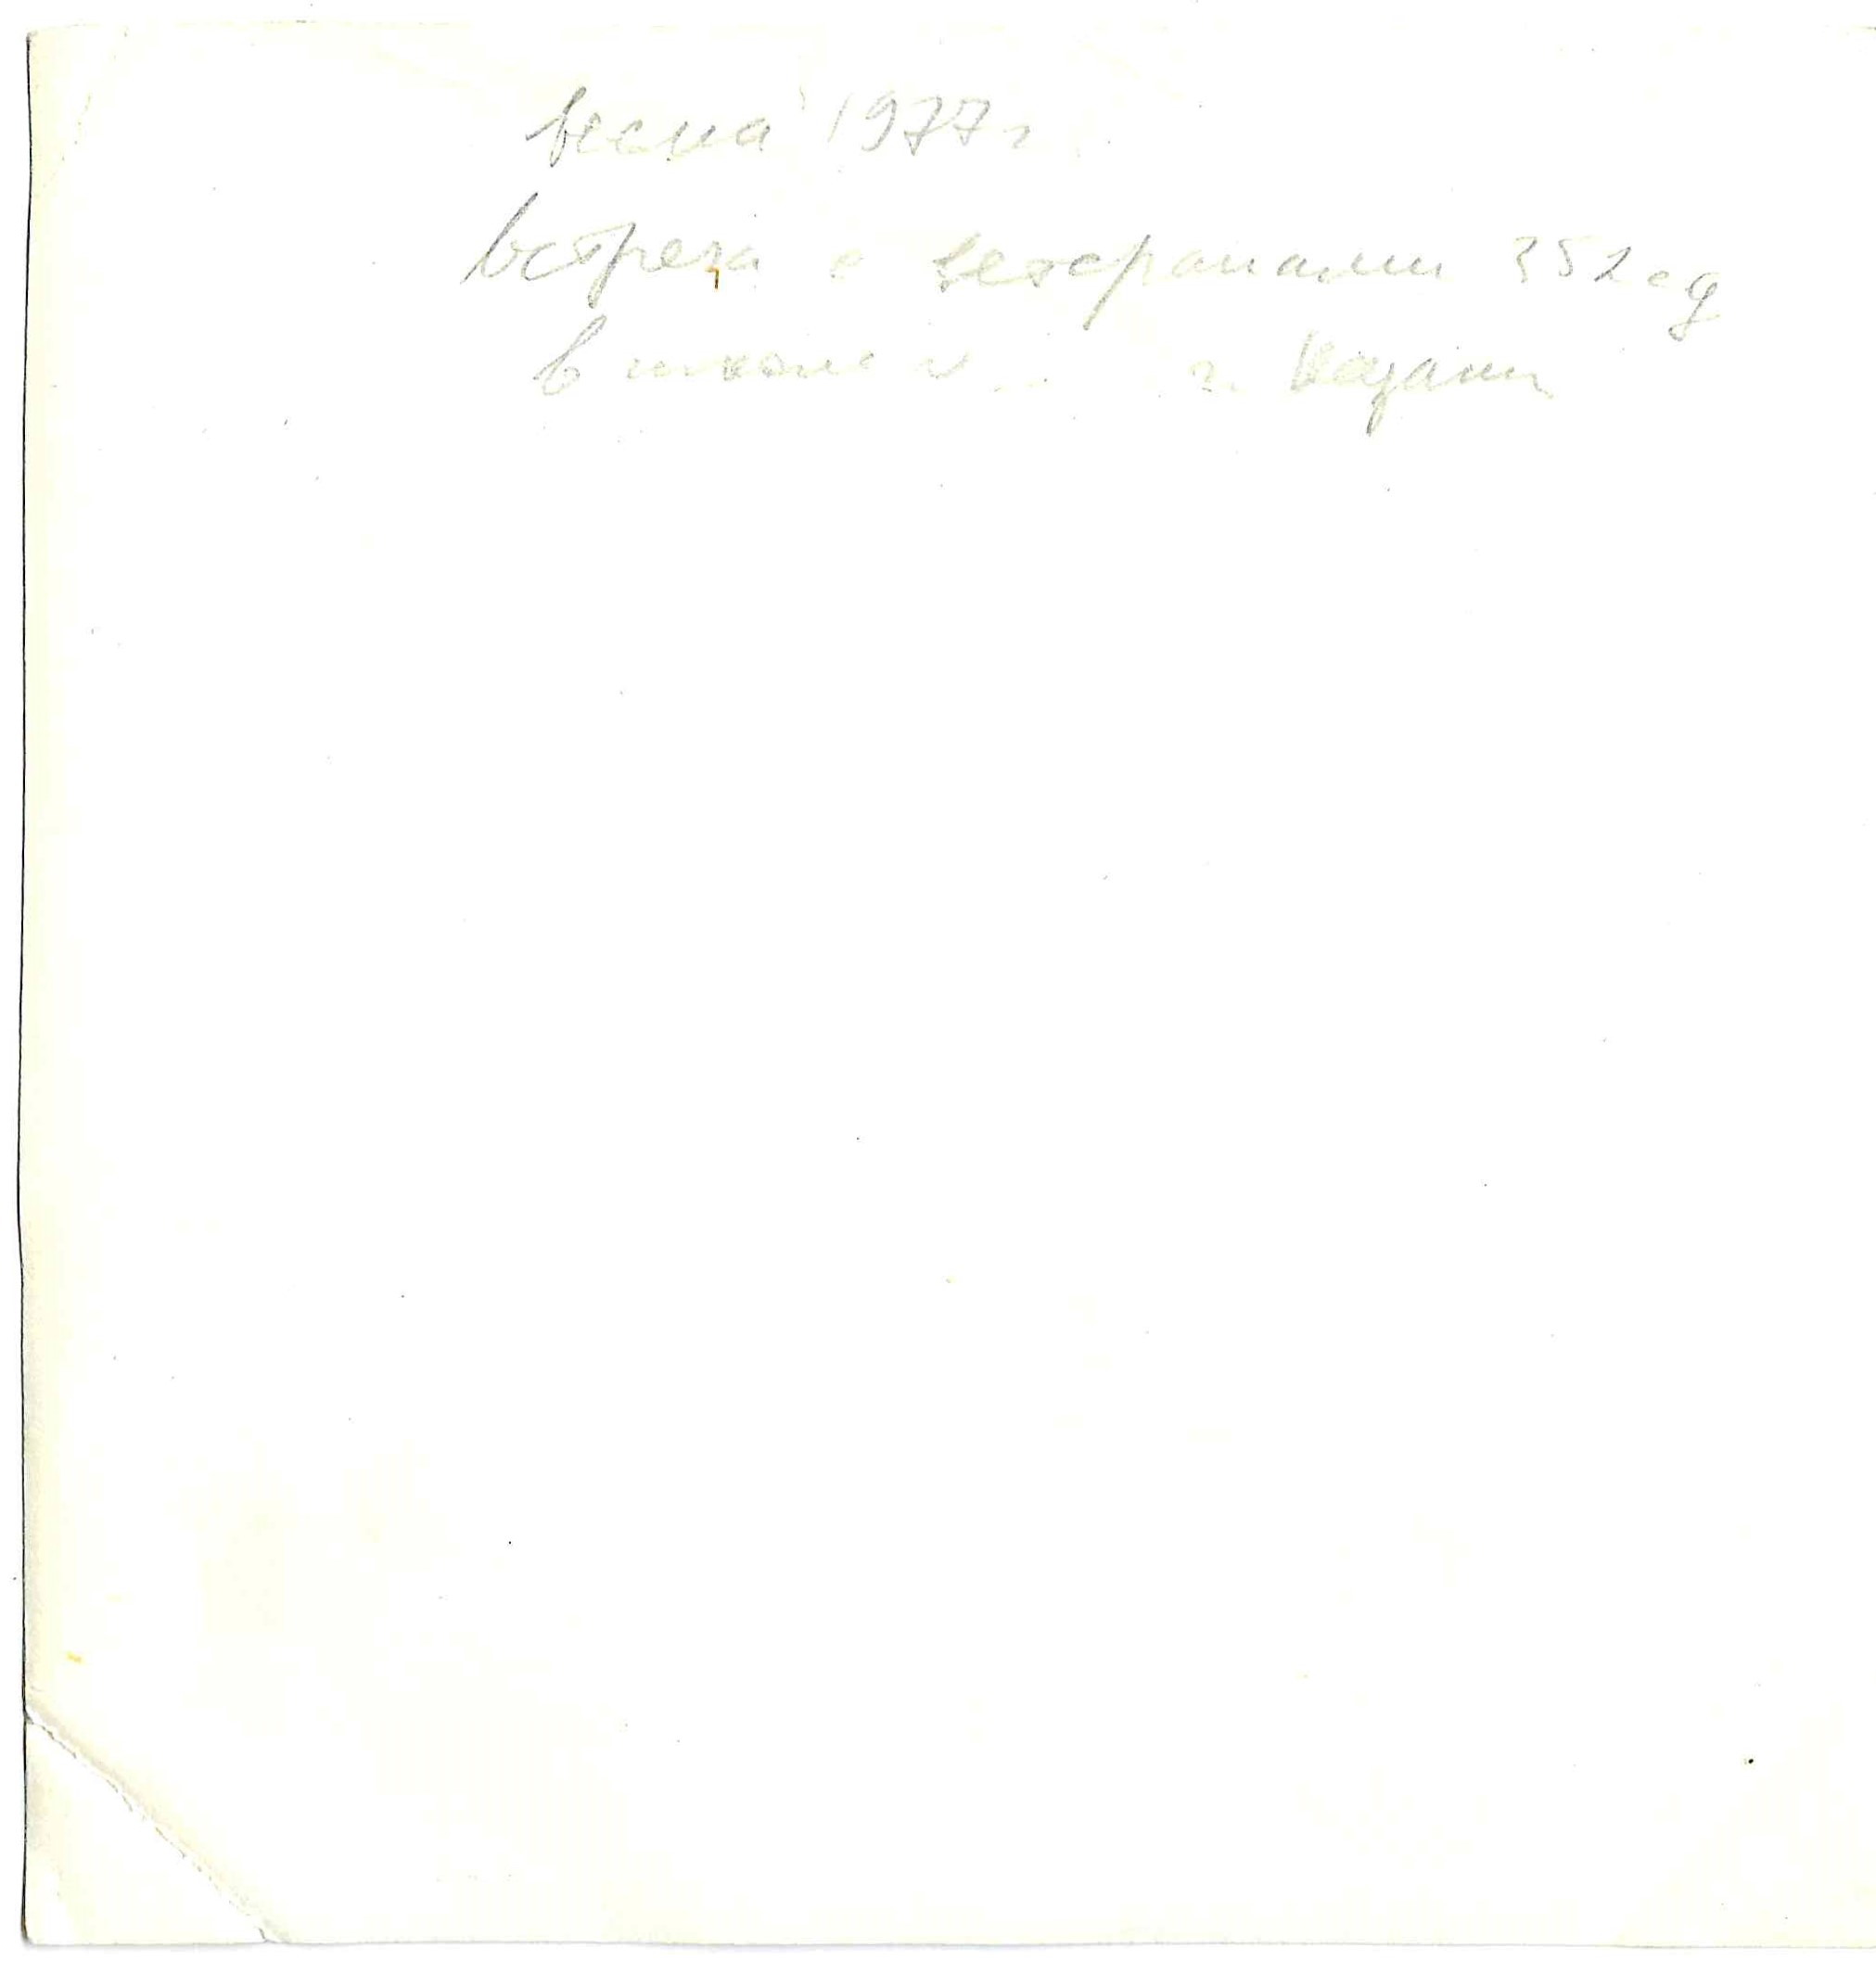 весна 1977 г
Встреча с ветеранами 352 сд
в школе № г. Казани